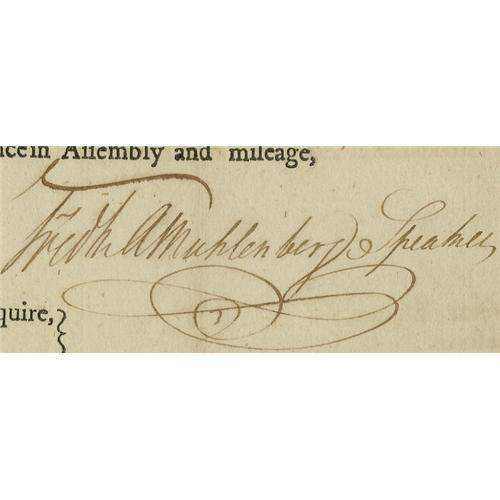 ice in Assembly and mileage,
Fredk A Muhlenberg Speaker
quire,}